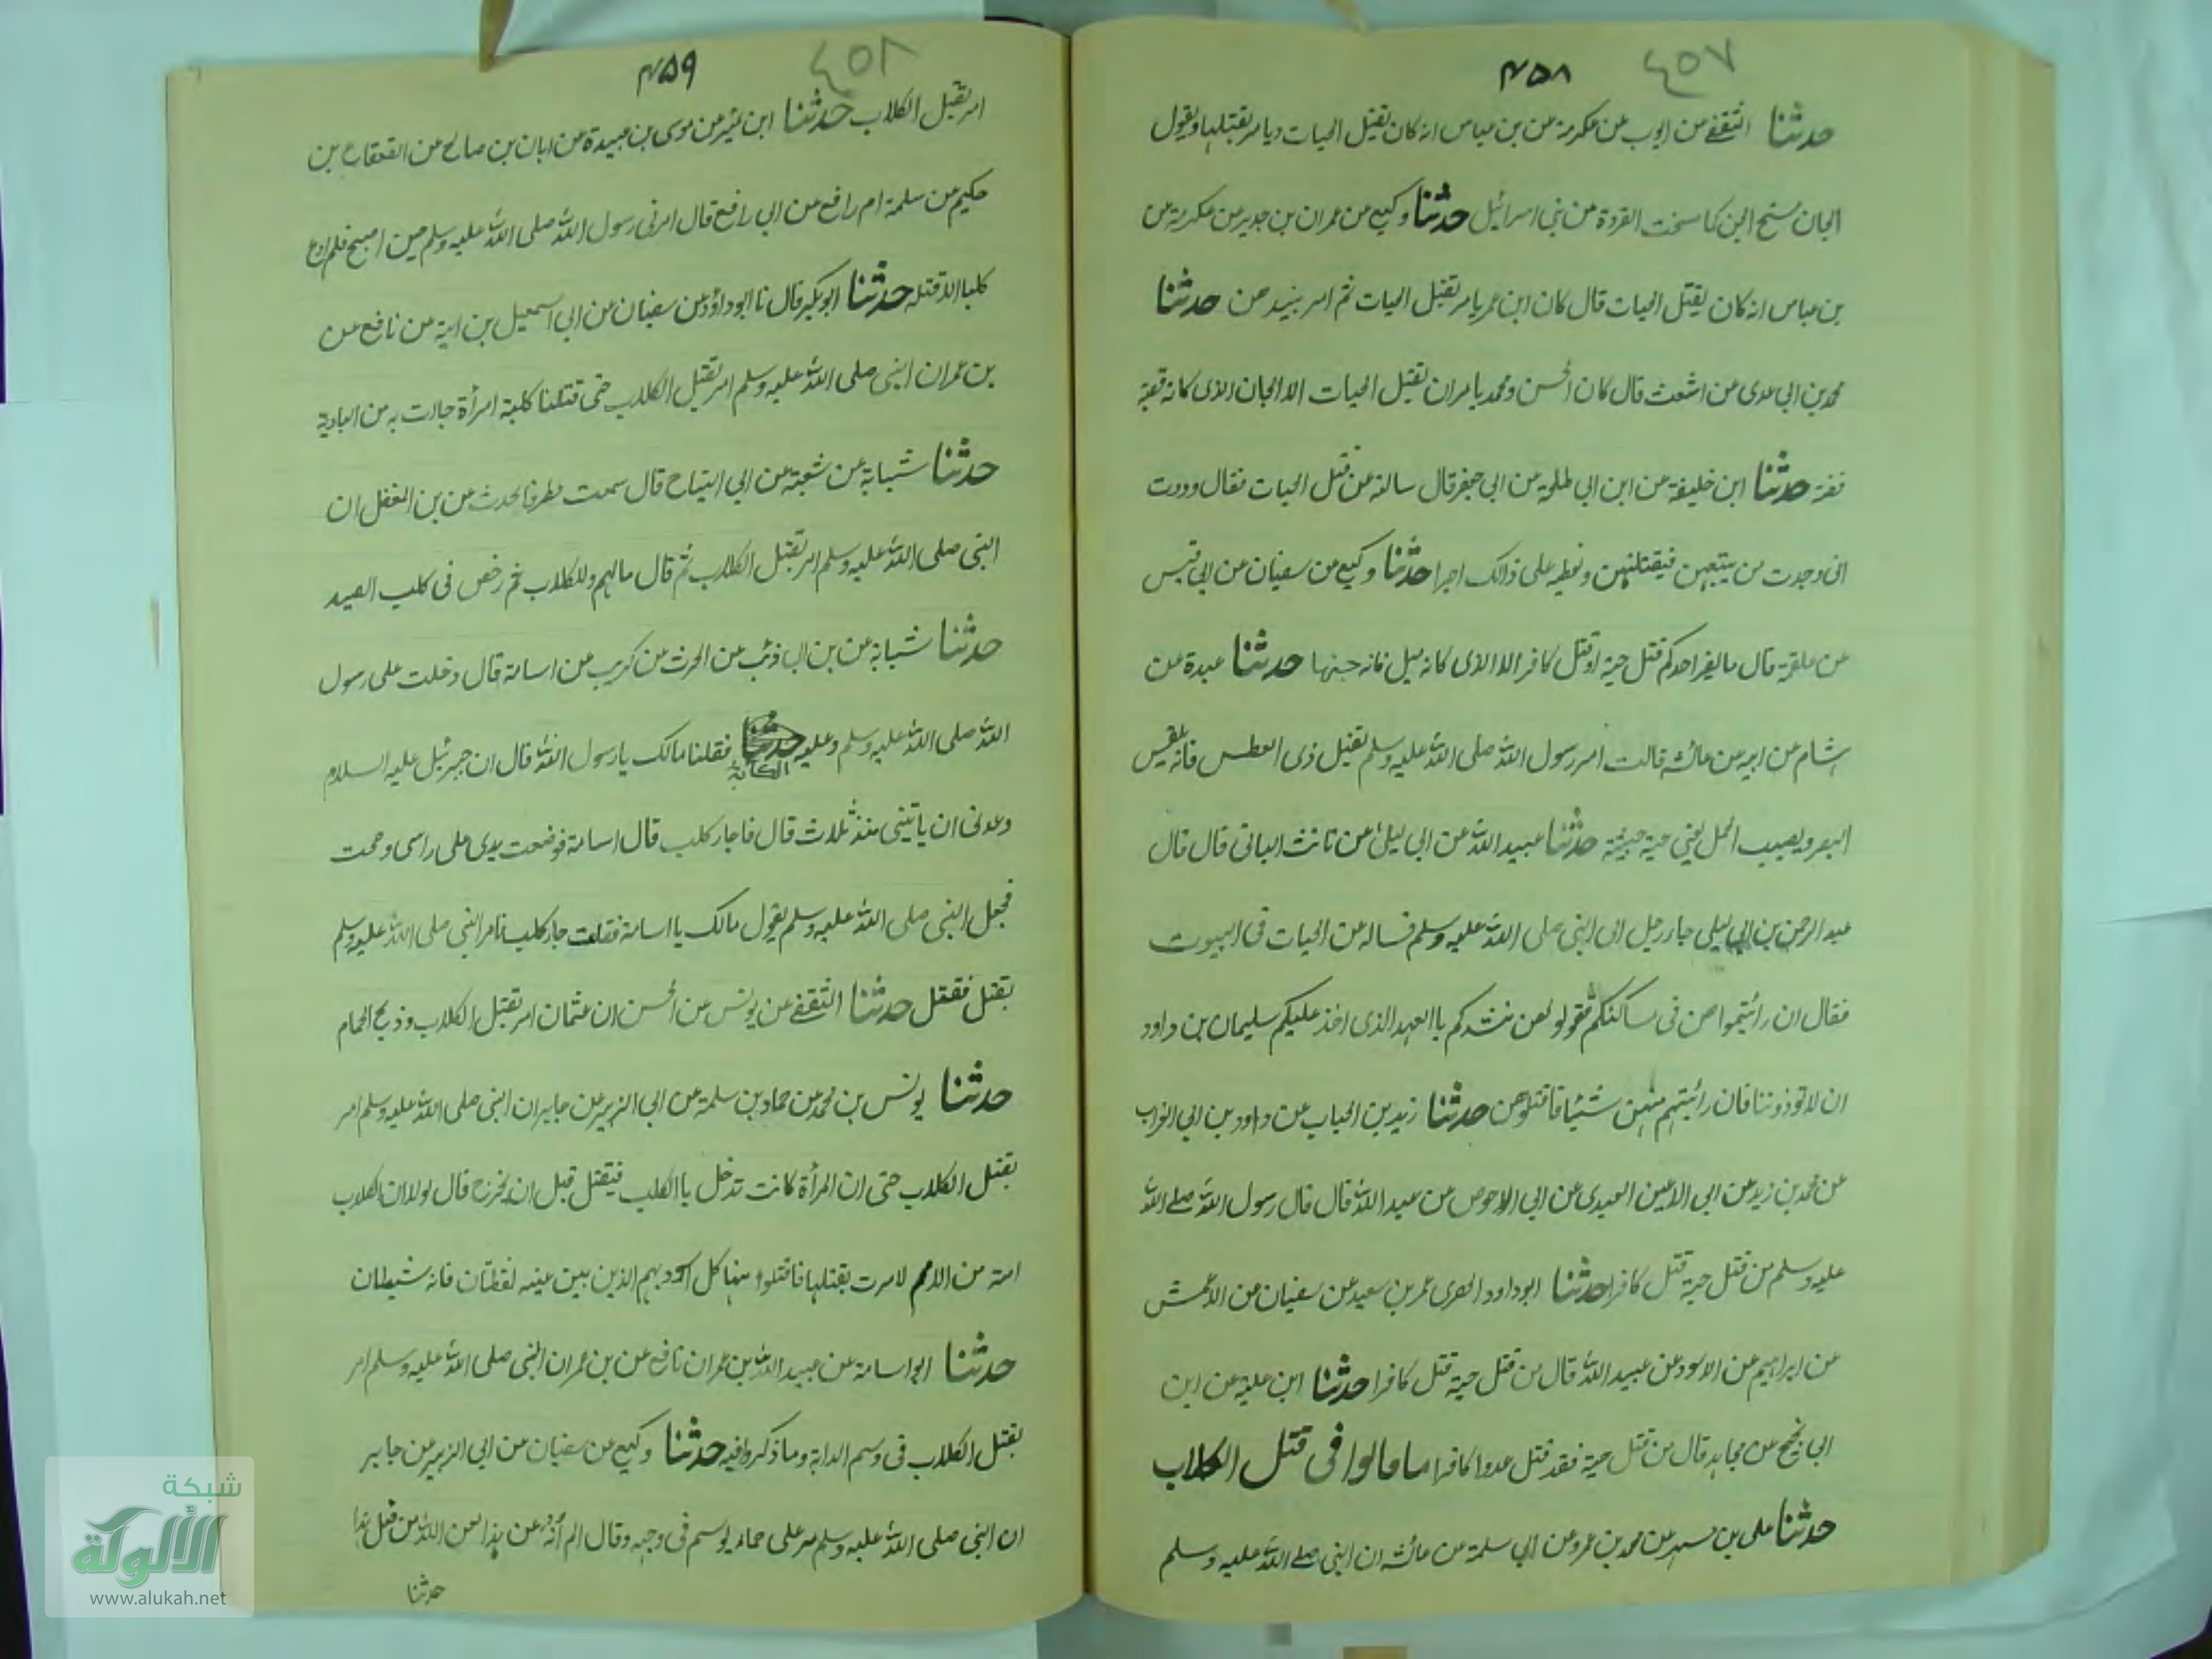 ٤٥٧
۴۵۸
حدثنا الثقفے عن ایوب عن عکرمة عن بن عباس انه کان یقتل الحیات ویامر بقتلها ویقول
الجان مسخ الجن کما مسخت القردة من بنی اسرائیل حدثنا وکیع عن عمران بن حدیر عن عکرمة عن
بن عباس انه کان یقتل الحیات قال کان ابن عمر یامر بقتل الحیات ثم امر بنبذهن حدثنا
محمد بن ابی عدی عن اشعث قال کان الحسن ومحمد یامران بقتل الحیات الا الجان الذی کانه قصبة
فضة حدثنا ابن خلیفة عن ابن ابی عن ابی جعفر قال سالته عن قتل الحیات فقال وددت
انی وجدت من یتبعهن فیقتلهن ونعطیه علی ذالک اجرا حدثنا وکیع عن سفیان عن ابی قیس
عن علقمة قال مایضر احدکم قتل حیة او قتل کافر الا الذی کانه میل فانه جنها حدثنا عبدة عن
هشام عن ابیه عن عائشه قالت امر رسول الله صلی الله علیه وسلم بقتل ذی فانه
البصر ویصیب الحمل یعنی حیة خبیثة حدثنا عبید الله عن ابی لیلی عن ثابت البنانی قال قال
عبد الرحمن بن ابی لیلی جاء رجل الی النبی صلی الله علیه وسلم فساله عن الحیات فی البیوت
فقال ان رائیتموا هن فی مساکنکم فقولو لهن ننشدکم باالعهد الذی اخذ علیکم سلیمان بن داود
ان لا توذوننا فان رائیتم منهن شیئا فاقتلوهن حدثنا زید بن الحباب عن داود بن ابی الفرات
عن محمد بن زید عن ابی الاعین العبدی عن ابی الاحوص عن عبد الله قال قال رسول الله صلے الله
علیه وسلم من قتل حیة قتل کافرا حدثنا ابو داود الحفری عمر بن سعید عن سفیان عن الاعمش
عن ابراهیم عن الاسود عن عبید الله قال من قتل حیة قتل کافرا حدثنا ابن علیة عن ابن
ابی نجیح عن مجاهد قال من قتل حیة فقد قتل عدوا کافرا ما قالوا فی قتل الکلاب
حدثنا علی بن مسهر عن محمد بن عمرو عن ابی سلمة عن عائشه ان النبی صلے الله علیه وسلم
٤٥٨
۴۵۹
امر بقتل الکلاب حدثنا ابن نمیر عن موسی بن عبیدة عن ابان بن صالح عن القعقاع بن
حکیم عن سلمة ام رافع عن ابی رافع قال امرنی رسول الله صلی الله علیه وسلم حین اصبح فلم ادع
کلبا الا قتلته حدثنا ابو بکر قال نا ابو داؤد عن سفیان عن ابی اسمعیل بن امیة عن نافع عن
بن عمر ان النبی صلی الله علیه وسلم امر بقتل الکلاب حتی قتلنا کلبة امرأة جاءت به من البادیة
حدثنا شبابة عن شعبة عن ابی التیاح قال سمعت مطرفا یحدث عن بن المغفل ان
النبی صلی الله علیه وسلم امر بقتل الکلاب ثم قال مالهم وللکلاب ثم رخص فی کلب الصید
حدثنا شبابة عن بن ابی ذئب عن الحرث عن کریب عن اسامة قال دخلت علی رسول
الله صلی الله علیه وسلم وعلیه الکآبة فقلنا مالک یا رسول الله قال ان جبرئیل علیه السلام
وعدنی ان یاتینی منذ ثلاث قال فاجاز کلب قال اسامة فوضعت یدی علی راسی وصحت
فجعل النبی صلی الله علیه وسلم یقول مالک یا اسامة فقلت جاز کلب فامر النبی صلی الله علیه وسلم
بقتل فقتل حدثنا الثقفے عن یونس عن الحسن ان عثمان امر بقتل الکلاب وذبح الحمام
حدثنا یونس بن محمد عن حماد بن سلمة عن ابی الزبیر عن جابر ان النبی صلی الله علیه وسلم امر
بقتل الکلاب حتی ان المرأة کانت تدخل باالکلب فیقتل قبل ان یخرج قال لولا ان الکلاب
امة من الامم لامرت بقتلها فاقتلوا منها کل اسود بهیم الذین بین عینیه نقطتان فانه شیطان
حدثنا ابو اسامة عن عبید الله بن عمر ان نافع عن بن عمر ان النبی صلی الله علیه وسلم امر
بقتل الکلاب فی وسم الدابة وما ذکروا فیه حدثنا وکیع عن سفیان عن ابی الزبیر عن جابر
ان النبی صلی الله علیه وسلم مر علی حمار یوسم فی وجهه وقال الم انه عن هذا لعن الله من فعل هذا
حدثنا
شبكة
الألوكة
www.alukah.net